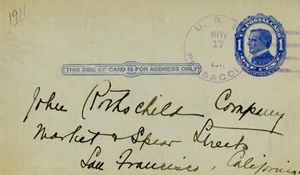 1911
U. S.
NOV
17
PENSACOLA
U.S. POSTAL CARD
1 1
THIS SIDE OF CARD IS FOR ADDRESS ONLY
John Rothschild Company
Market & Spear Streets
San Francisco, California